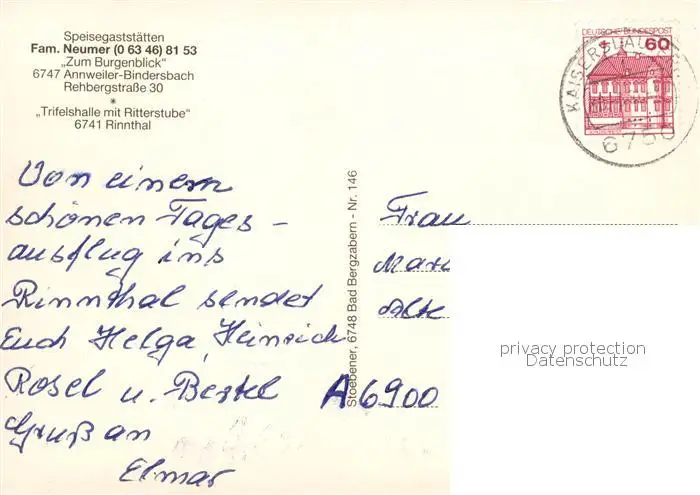 Speisegaststätten
Fam. Neumer (0 63 46) 81 53
„Zum Burgenblick"
6747 Annweiler-Bindersbach
Rehbergstraße 30
*
„Trifelshalle mit Ritterstube"
6741 Rinnthal
DEUTSCHE BUNDESPOST
60
KAISERSLAUTERN
6750
Von einem
schönen Tages-
ausflug ins
Rinnthal sendet
Euch Helga, Heinrich
Rosel u. Bertel
Gruß an
Elmar
Stoebener, 6748 Bad Bergzabern - Nr. 146
Frau
A 6900
privacy protection
Datenschutz